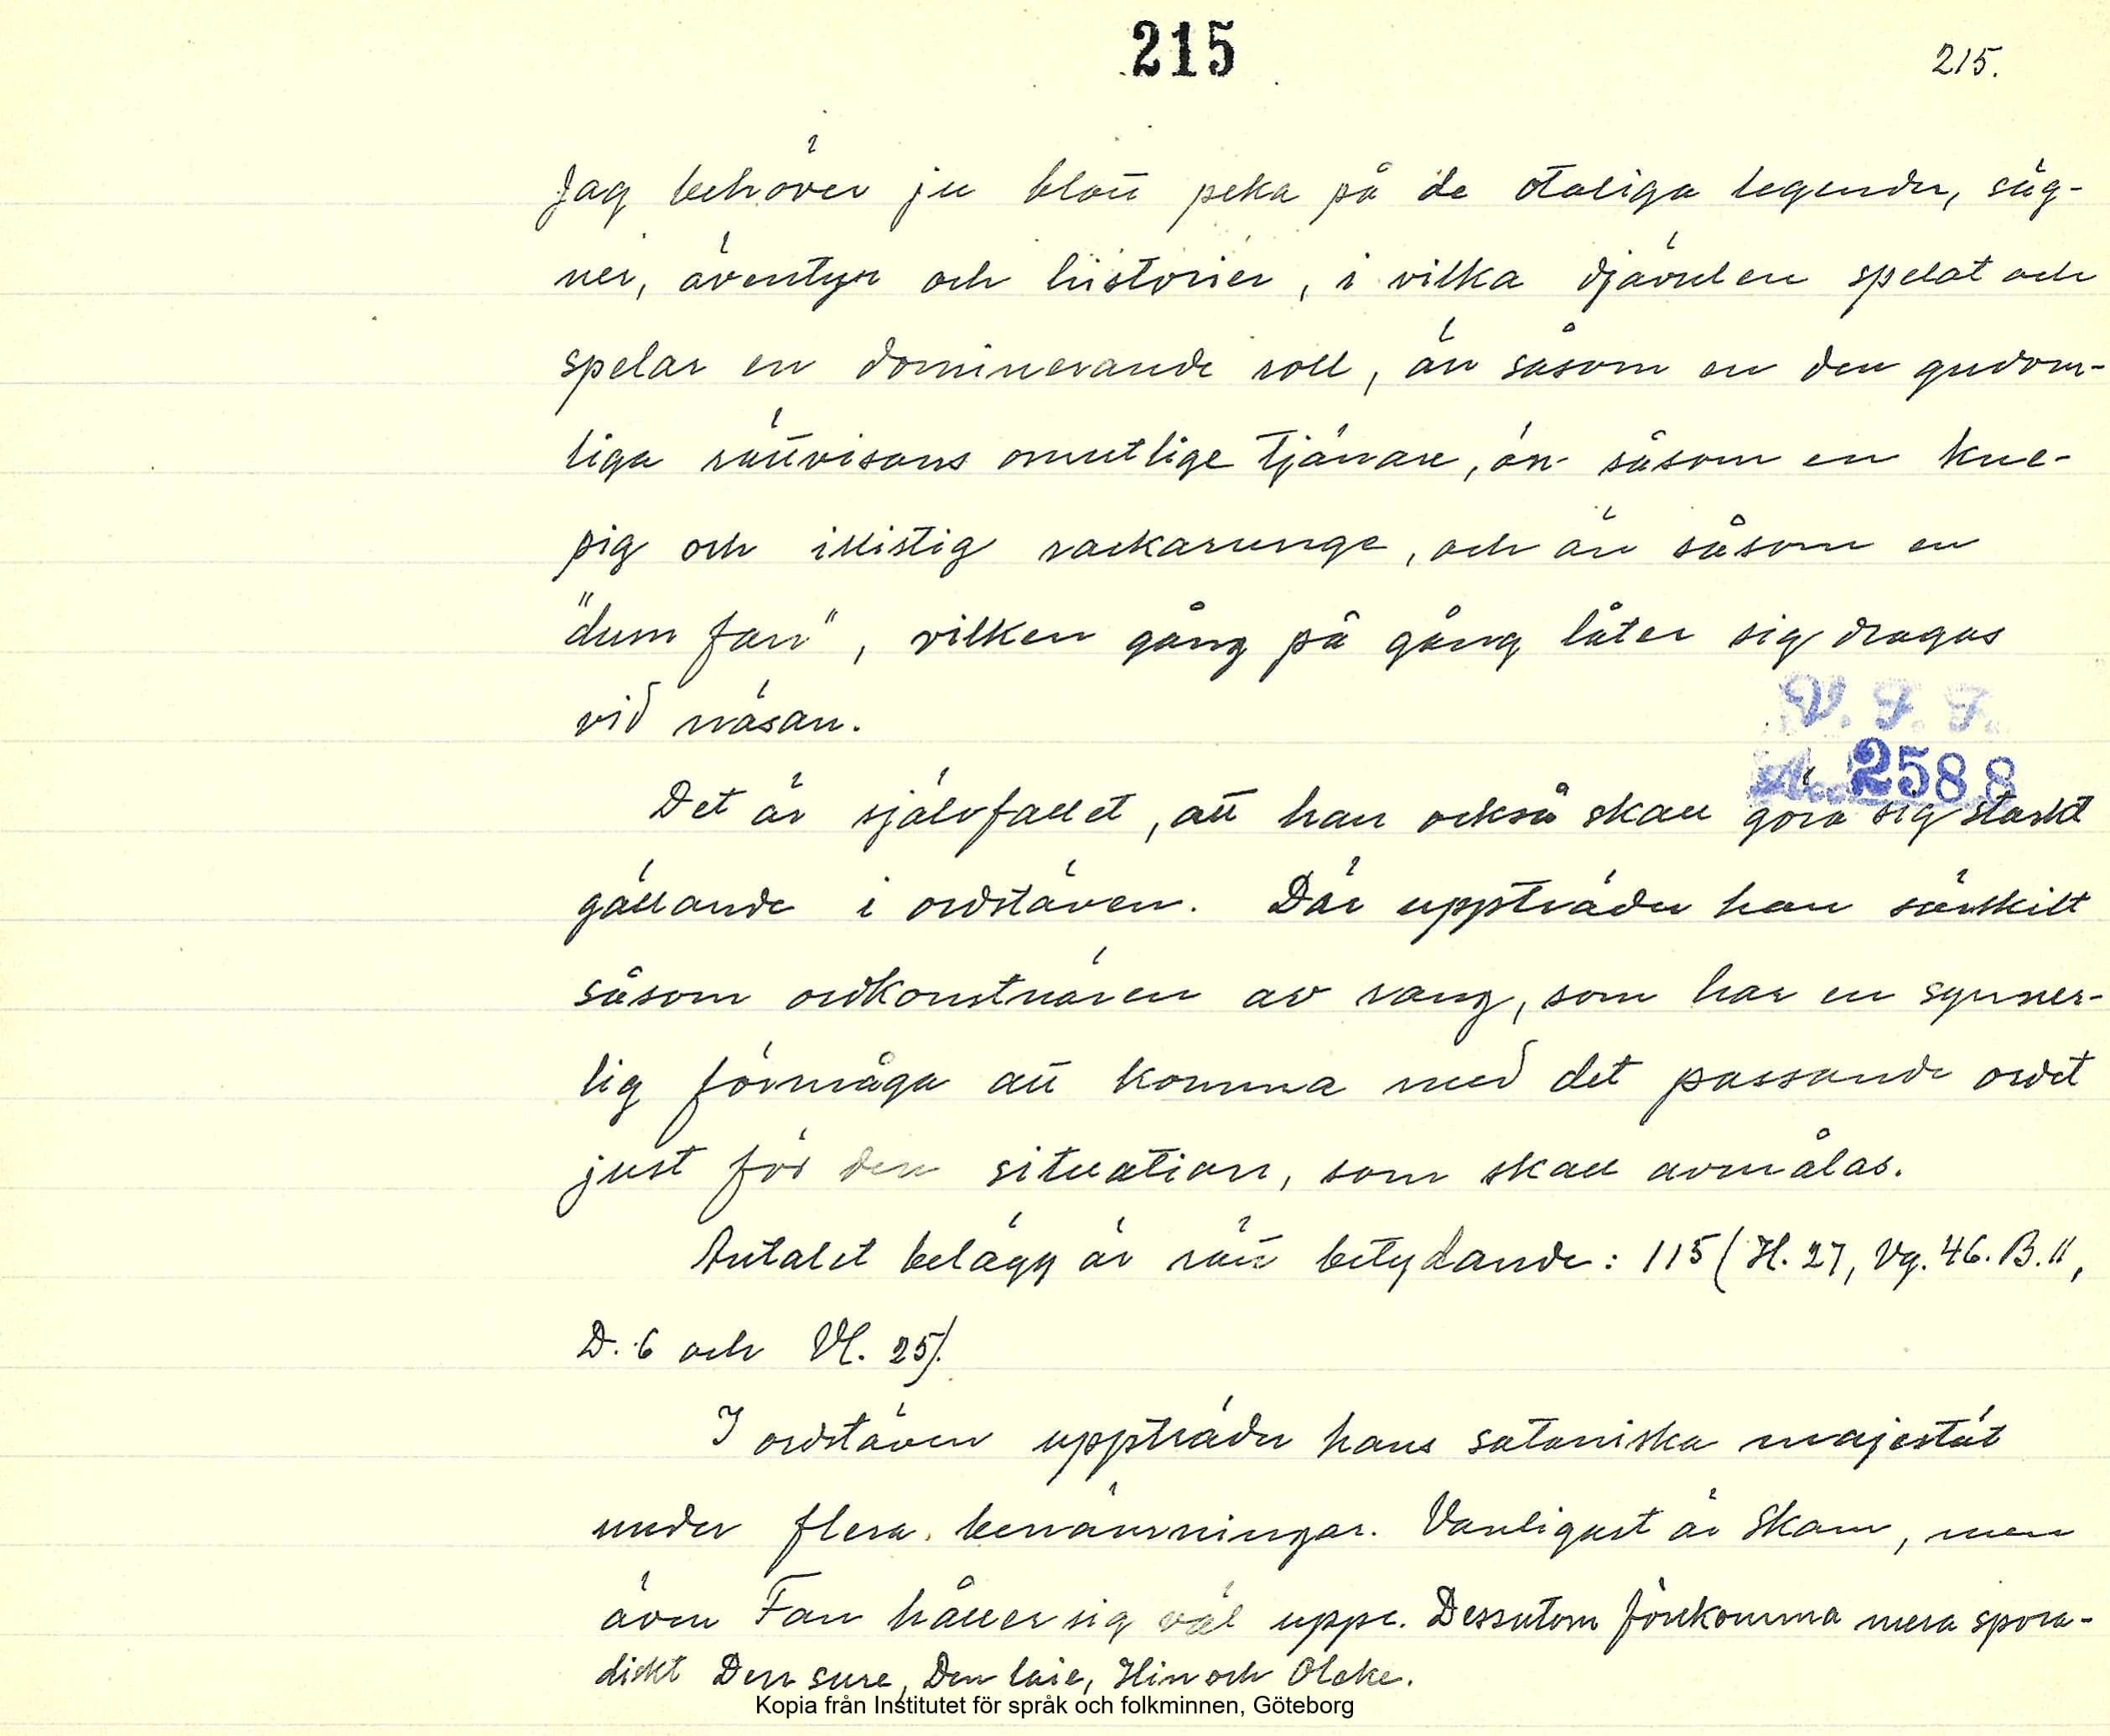 215
215.
Jag behöver ju blott peka på de otaliga legender, säg-
ner, äventyr och historier, i vilka djävulen spelat och
spelar en dominerande roll, än såsom en den gudom-
liga rättvisans omutlige tjänare, än såsom en kne-
pig och illistig rackarunge, och än såsom en
"dum fan", vilken gång på gång låter sig dragas
vid näsan.
V. F. F.
Acc. 2588
Det är självfallet, att han också skall göra sig starkt
gällande i ordstäven. Där uppträder han särskilt
såsom ordkonstnären av rang, som har en synner-
lig förmåga att komma med det passande ordet
just för den situation, som skall avmålas.
Antalet belägg är rätt betydande: 115 (H. 27, Vg. 46. B. 11,
D. 6 och Vl. 25).
I ordstäven uppträder hans sataniska majestät
under flera benämningar. Vanligast är Skam, men
även Fan håller sig väl uppe. Dessutom förekomma mera spora-
diskt Den sure, Den låie, Hin och Olcke.
Kopia från Institutet för språk och folkminnen, Göteborg